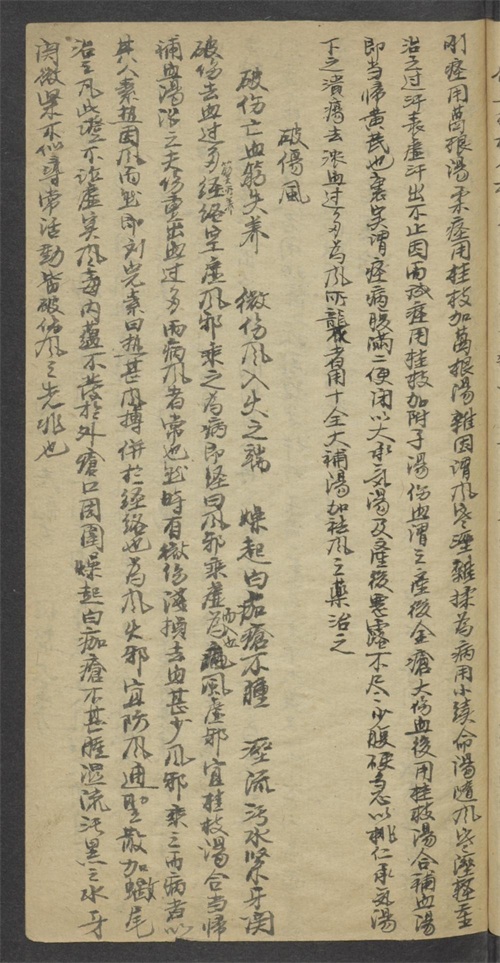 剛痓用葛根湯柔痓用桂枝加葛根湯雜因謂風寒溼雜揉為病用小續命湯隨風寒溼輕重
治之过汗表虛汗出不止因而成痓用桂枝加附子湯伤血謂之產後金瘡大伤血後用桂枝湯合補血湯
即当歸黄芪也裏实謂痓病腹滿二便闭以大承気湯及產後惡露不尽々少腹硬急以桃仁承気湯
下之潰瘍去膿血过多為風所襲者用十全大補湯加祛風之藥治之
破傷風
破伤亡血筋失养 微伤風入火之端 燥起白痂瘡不腫 溼流污水緊牙関
破伤去血过多筋失所养经絡空虛風邪乘之為病即经曰風邪乘虛而為風虛邪也宜桂枝湯合当歸
補血湯治之夫伤重出血过多而病風者常也或時有微伤滋損去血甚少風邪乘之而病者以
其人素挂因風而或即刘完素曰热甚風搏併於经絡也為風火邪宜防風通聖散加蝎尾
治之凡此證不论虛实風毒内蘊不發於外瘡口周圍燥起白痂瘡不甚腫湿流汚黑之水牙
関微緊不似尋常活動皆破伤風之先兆也